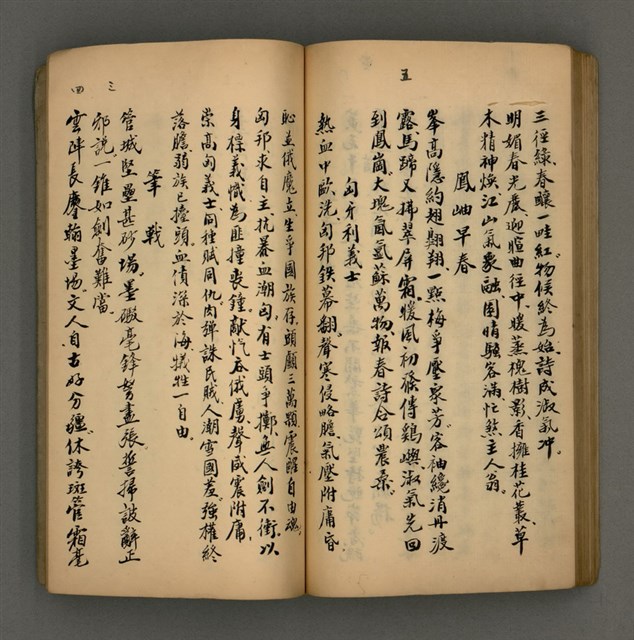 五
三徑綠。春釀一畦紅。物候終為始。詩成淑氣冲。
明媚春光麗。迎暄曲徑中。暖蒸槐樹影。香擁桂花叢。草
木精神煥。江山氣象融。園晴騷客滿。忙煞主人翁。
鳳岫早春
峯高隱約翅翺翔。一點梅爭壓眾芳。客袖纔消丹渡
露。馬蹄又拂翠屏霜。暖風初發傳鷄嶼。淑氣先回
到鳳崗。大塊氤氳蘇萬物。報春詩合頌農桑。
匈牙利義士
熱血中歐洗匈邦。鉄幕翻聲寒侵略膽。氣壓附庸昏
三
四
恥並俄魔立。生爭國族存。頭顱三萬顆。震醒自由魂
匈邦求自主。抗暴血潮匈。有士頭爭擲。無人劍不衝。以
身標義幟。為匪撞喪鐘。敵愾吞俄虜。聲威震附庸。
崇高匈義士。同種賦同仇。肉彈誅民賊。人潮雪國羞。強權終
落膽。弱族已擡頭。血債深於海。犧牲一自由。
筆戰
管城堅壘甚砂場。墨磤毫鋒努盡張。誓掃詖辭正
邪說。一錐如劍奮難當。
雲陣長麾翰墨場。文人自古好分疆。休誇斑管霜毫